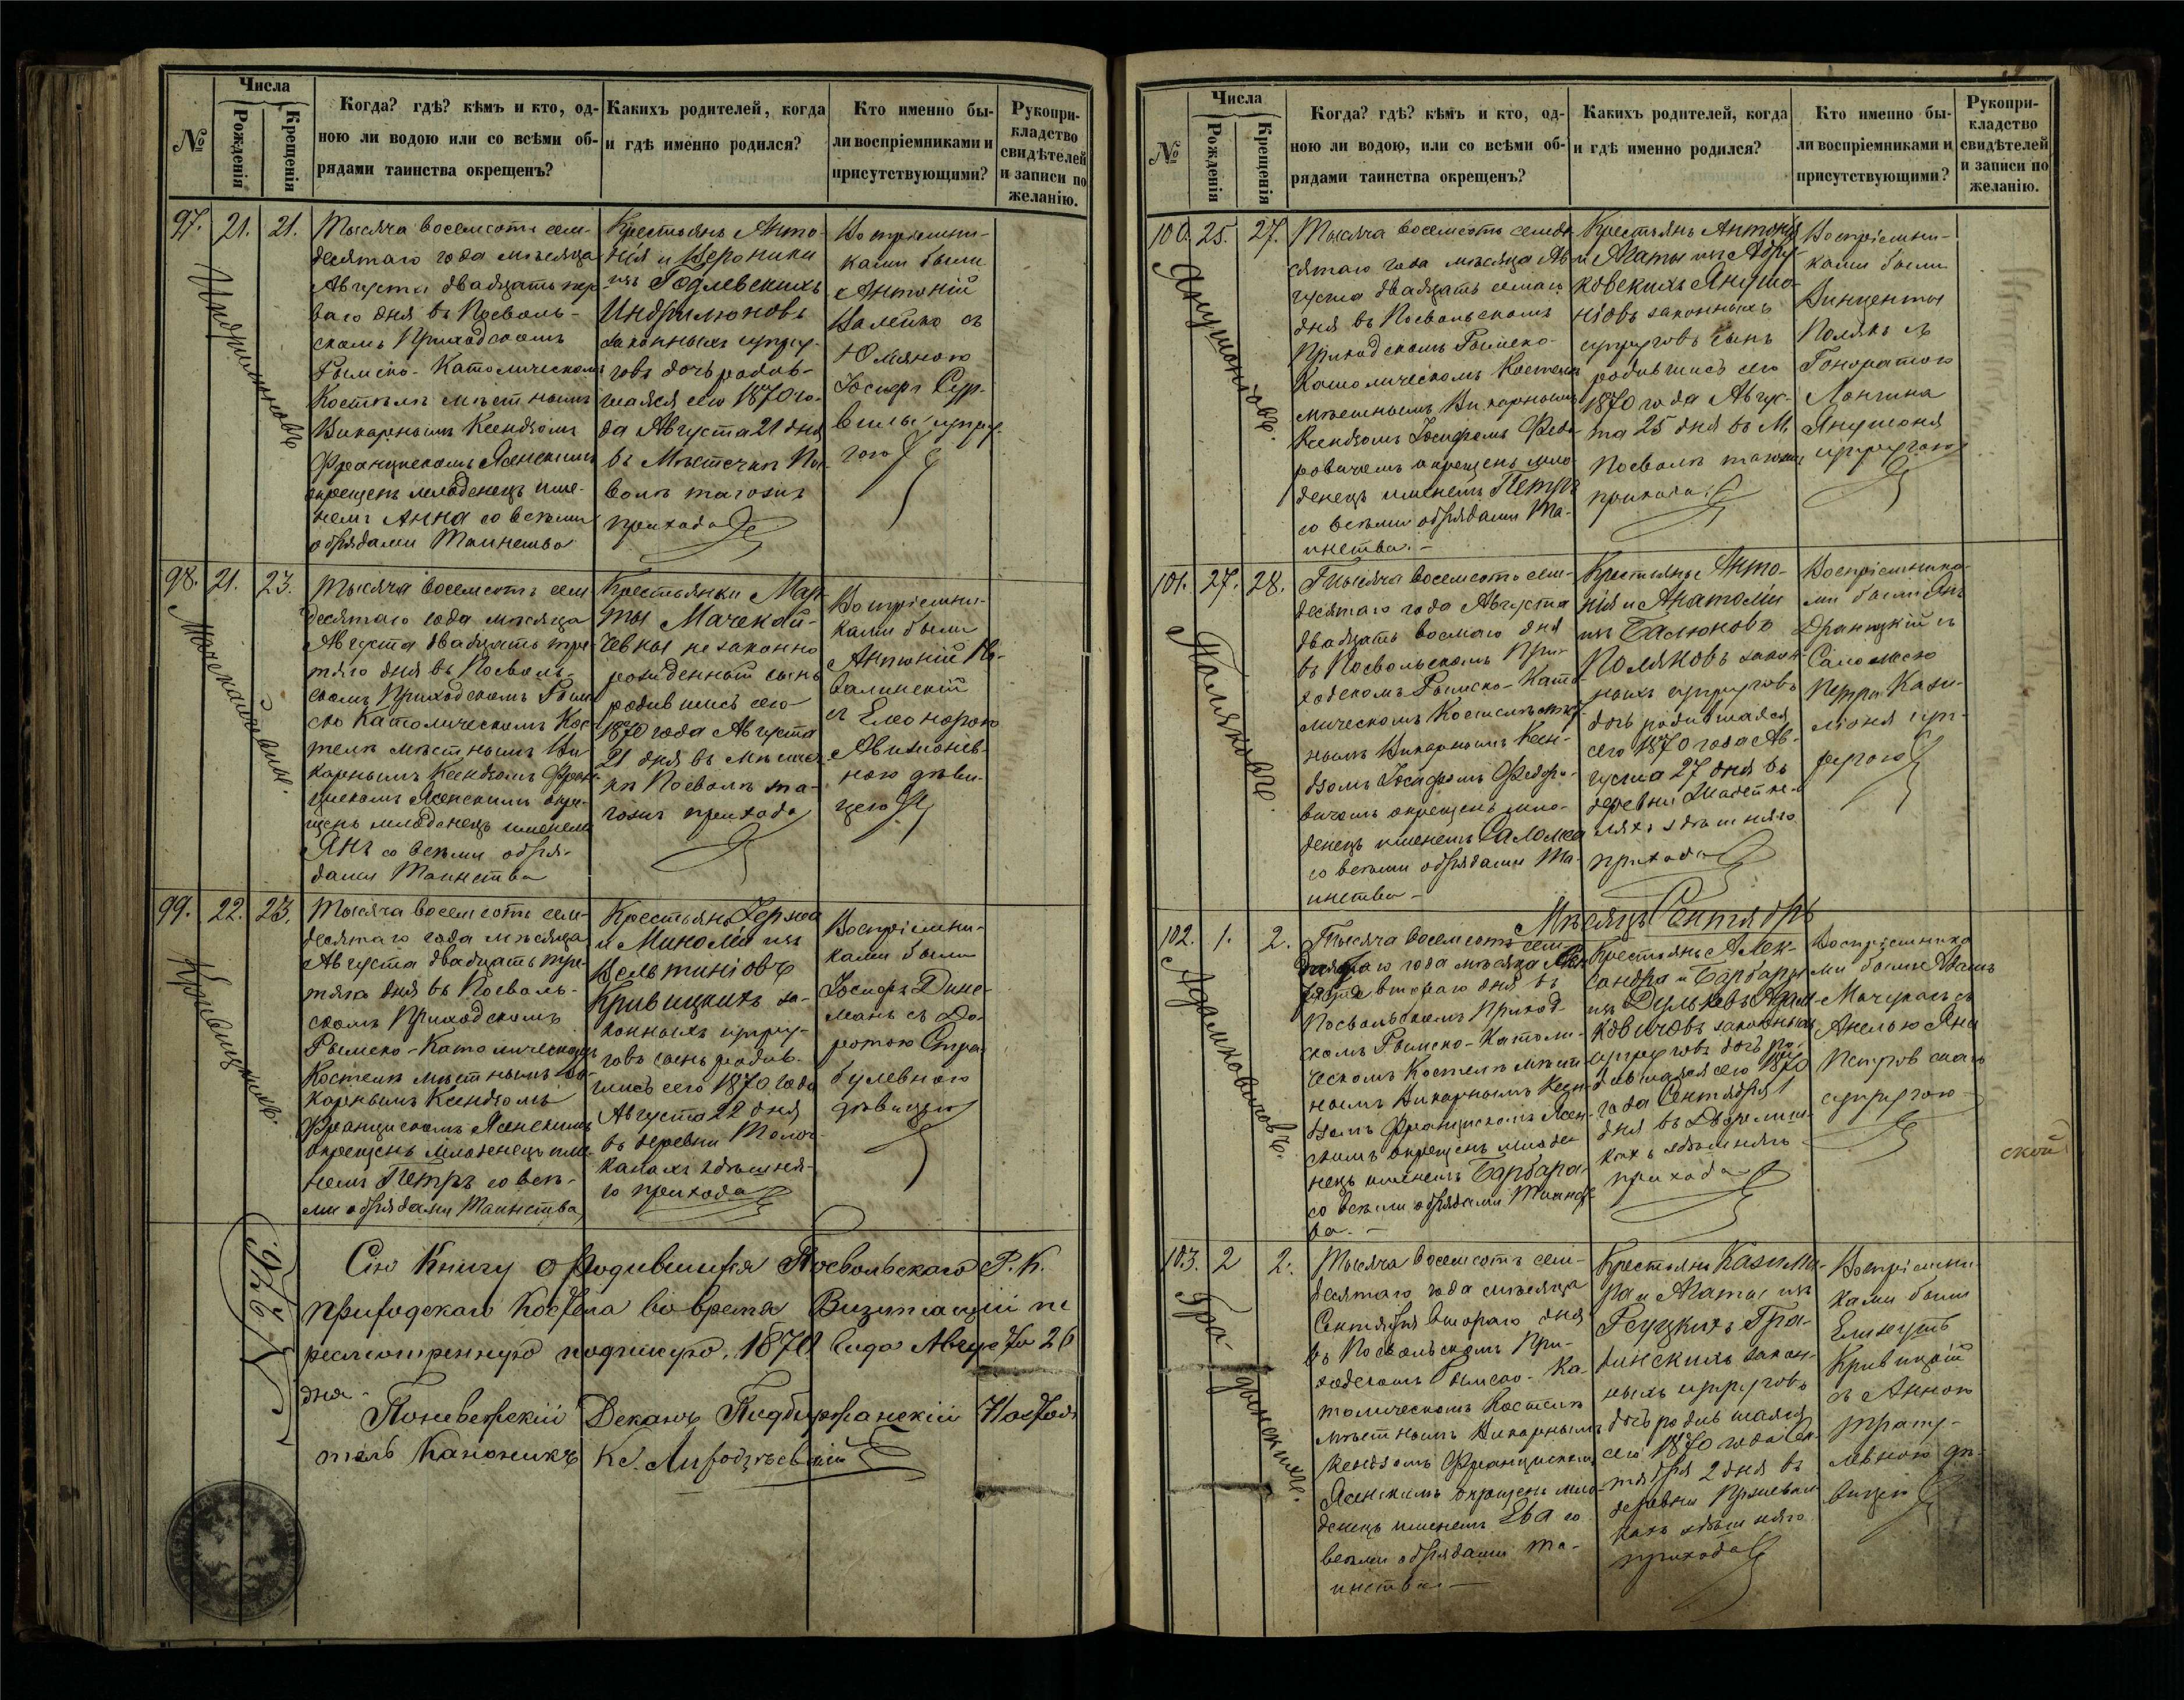 Числа
№
Рожденія
Крещенія
Когда? гдѣ? кѣмъ и кто, од-
ною ли водою или со всѣми об-
рядами таинства окрещенъ?
Какихъ родителей, когда
и гдѣ именно родился?
Кто именно бы-
ли воспріемниками и
присутствующими?
Рукопри-
кладство
свидѣтелей
и записи по
желанію.
97.
21.
21.
Тысяча восемсотъ семъ-
десятаго года мѣсяца
Августа двадцать пер-
ваго дня въ Посволь-
скомъ Приходскомъ
Римско-Католическомъ
Костелѣ мѣстнымъ
Викарнымъ Ксендзомъ
Францискомъ Ясенскимъ
окрещенъ младенецъ име-
немъ Анна со всѣми
обрядами Таинства
Крестьянъ Анто-
нія и Вероники
изъ Годлевскихъ
законныхъ супру-
говъ дочь родив-
шаяся сего 1870 го-
да Августа 21 дня
въ Мѣстечкѣ По-
волѣ тагожъ
прихода
Воспріемни-
ками были
Антоній
съ
Юліяною
супру-
гою
98.
21.
23.
Тысяча восемсотъ сем-
десятаго года мѣсяца
Августа двадцать тре-
тяго дня въ Посволь-
скомъ Приходскомъ Рим-
ско Католическомъ Кос-
телѣ мѣстнымъ Ви-
карнымъ Ксендзомъ Фран-
цискомъ Ясенскимъ окре-
щенъ младенецъ именемъ
Янъ со всѣми обря-
дами Таинства
Крестьянки Мар-
ты Мачекой-
чевны незаконно
рожденный сынъ
родившись сего
1870 года Августа
21 дня въ Мѣстеч-
кѣ Посволѣ та-
гожъ прихода
Воспріемни-
ками были
Антоній Но-
валинскій
съ Елеонорою
ною дѣви-
цею
99.
22.
23.
Кривицкихъ.
Тысяча восемсотъ сем-
десятаго года мѣсяца
Августа двадцать тре-
тяго дня въ Посволь-
скомъ Приходскомъ
Римско-Католическомъ
Костелѣ мѣстнымъ Ви-
карнымъ Ксендзомъ
Францискомъ Ясенскимъ
окрещенъ младенецъ име-
немъ Петръ со всѣ-
ми обрядами Таинства
Крестьянъ
и
Кривицкихъ за-
конныхъ супру-
говъ сынъ родив-
шись сего 1870 года
Августа 22 дня
въ деревни Толоч-
калахъ здѣшня-
го прихода
Воспріемни-
ками были
Іосифъ
съ До-
ротою
дѣвицею
Сію Книгу о Родившихся Посвольскаго Р. К.
приходскаго Костела во время Визитаціи пе
ресмотренную подпишую. 1870 Года Августа 26
дня
Поневежскій Деканъ Подбиржанскій Настоя
тель Каноникъ Кс.
Числа
№
Рожденія
Крещенія
Когда? гдѣ? кѣмъ и кто, од-
ною ли водою, или со всѣми об-
рядами таинства окрещенъ?
Какихъ родителей, когда
и гдѣ именно родился?
Кто именно бы-
ли воспріемниками и
присутствующими?
Рукопри-
кладство
свидѣтелей
и записи по
желанію.
100.
25.
27.
Янушоніовъ.
Тысяча восемсотъ семде-
сятаго года мѣсяца Ав-
густа двадцать седмаго
дня въ Посвольскомъ
Приходскомъ Римско-
Католическомъ Костелѣ
мѣстнымъ Викарнымъ
Ксендзомъ Іосифомъ Федо-
ровичемъ окрещенъ мла-
денецъ именемъ Петръ
со всѣми обрядами Та-
инства. -
Крестьянъ Антонія
и Агаты изъ
ковскихъ Янушо-
ніовъ законныхъ
супруговъ сынъ
родившись сего
1870 года Авгус-
та 25 дня въ М.
Посволѣ тагожъ
прихода
Воспріемни-
ками были
Винценты
Полякъ съ
Гоноратою
Лонгина
Янушоня
супругою
101.
27.
28.
Поляковъ.
Тысяча восемсотъ сем-
десятаго года Августа
двадцать восмаго дня
въ Посвольскомъ При-
ходскомъ Римско-Като-
лическомъ Костелѣ мѣст-
нымъ Викарнымъ Ксен-
дзомъ Іосифомъ Федоро-
вичемъ окрещенъ мла-
денецъ именемъ Саломея
со всѣми обрядами Та-
инства -
Крестьянъ Анто-
нія и Анатоліи
изъ Балюновъ
Поляковъ закон-
ныхъ супруговъ
дочь родившаяся
сего 1870 года Ав-
густа 27 дня въ
деревни
здѣшняго
прихода
Воспріемника-
ми были Янъ
съ
Саломеею
Петра
суп-
ругою
Мѣсяцъ Сентябрь
102.
1.
2.
Адамковичовъ.
Тысяча восемсотъ сем-
десятаго года мѣсяца
втораго дня въ
Посвольскомъ Приход-
скомъ Римско-Католи-
ческомъ Костелѣ мѣст-
нымъ Викарнымъ Ксен-
дзомъ Францискомъ Ясен-
скимъ окрещенъ младе-
нецъ именемъ Барбара
со всѣми обрядами Таинст-
ва. -
Крестьянъ Алек-
сандра и Барбары
изъ Дульковъ Адам-
ковичовъ законныхъ
супруговъ дочь ро-
дившаяся сего 1870
года Сентября 1
дня въ
здѣшняго
прихода
Воспріемника
ми были Адамъ
съ
Анелью Яна
супругою
ской
103.
2
2.
Тысяча восемсотъ сем-
десятаго года мѣсяца
Сентября втораго дня
въ Посвольскомъ При-
ходскомъ Римско-Ка-
толическомъ Костелѣ
мѣстнымъ Викарнымъ
Ксендзомъ Францискомъ
Ясенскимъ окрещенъ мла-
денецъ именемъ Ева со
всѣми обрядами Та-
инства -
Крестьянъ Казими-
ра и Агаты изъ
закон-
ныхъ супруговъ
дочь родившаяся
сего 1870 года Сен-
тября 2 дня въ
деревни
здѣшняго
прихода
Воспріемни-
ками были
Кривицкій
съ Анною
дѣ-
вицею